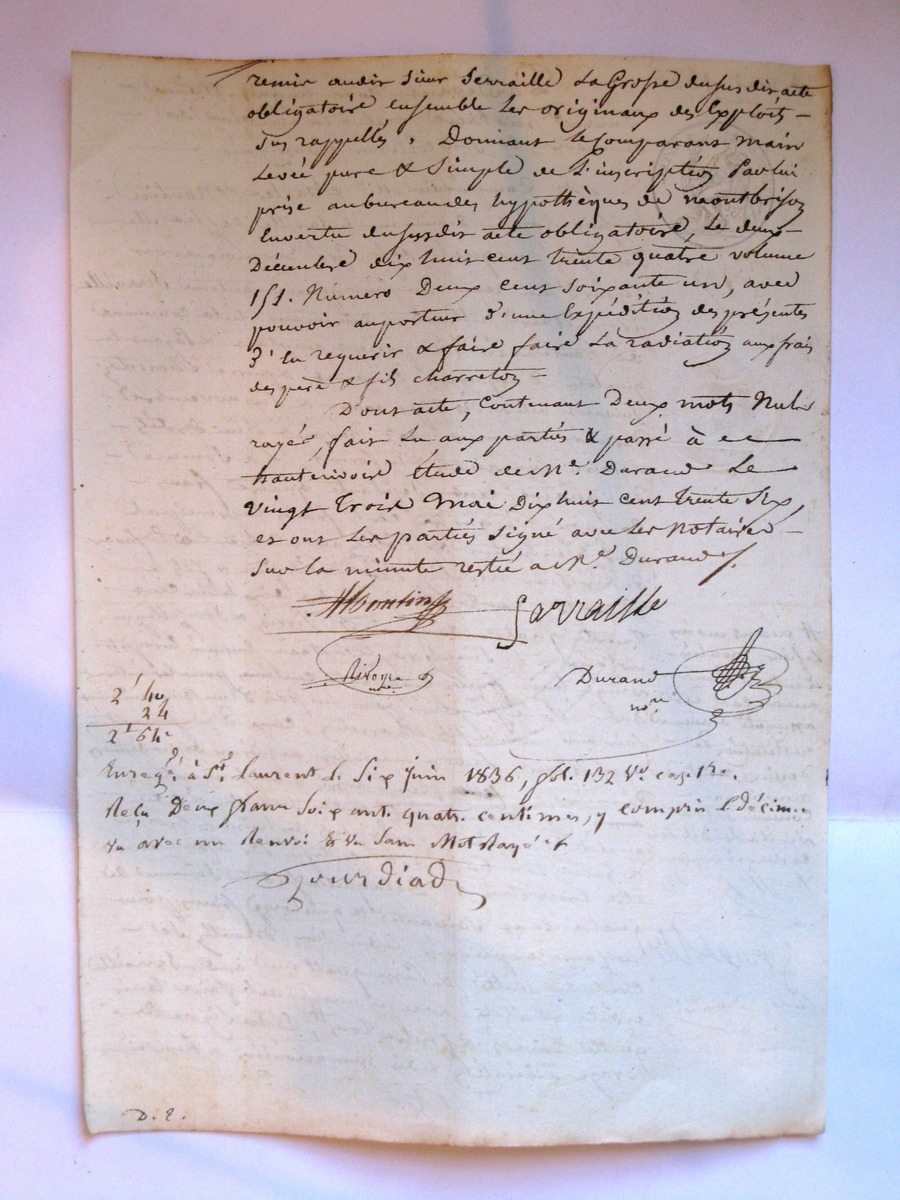 remis audit sieur Serraille La Grosse dusus dit acte
obligatoire ensemble les originaux des Exploits
sus rappellés, Donnant le Comparant main
Levée pure & Simple de l'inscription Par lui
prise au bureau des hypothèques de montbrison
En vertu dususdit acte obligatoire, Le deux
Décembre dix huit cent trente quatre volume
151. Numéro Deux cent soixante un, avec
pouvoir au porteur d'une Expédition des présentes
d'en requerir & faire faire La radiation aux frais
des père & fils charreton
Dont acte, Contenant Deux mots Nuls
rayés, fait Lu aux parties & passé à
hauterivoire Etude de Me. Durand Le
vingt Trois Mai Dix huit cent trente Six,
et ont Les parties signé avec Les Notaires
Sur la minute restée à Me. Durand
Sarraille
Durand
nre
2 40
24
2f 64c
Enregé. à St. laurent le Six juin 1836, fol. 132 Vo. case 1re.
Reçu Deux francs Soixante quatre centimes, y compris le décime
avec un Renvoi & un Sans Mot Rayé
D. E.